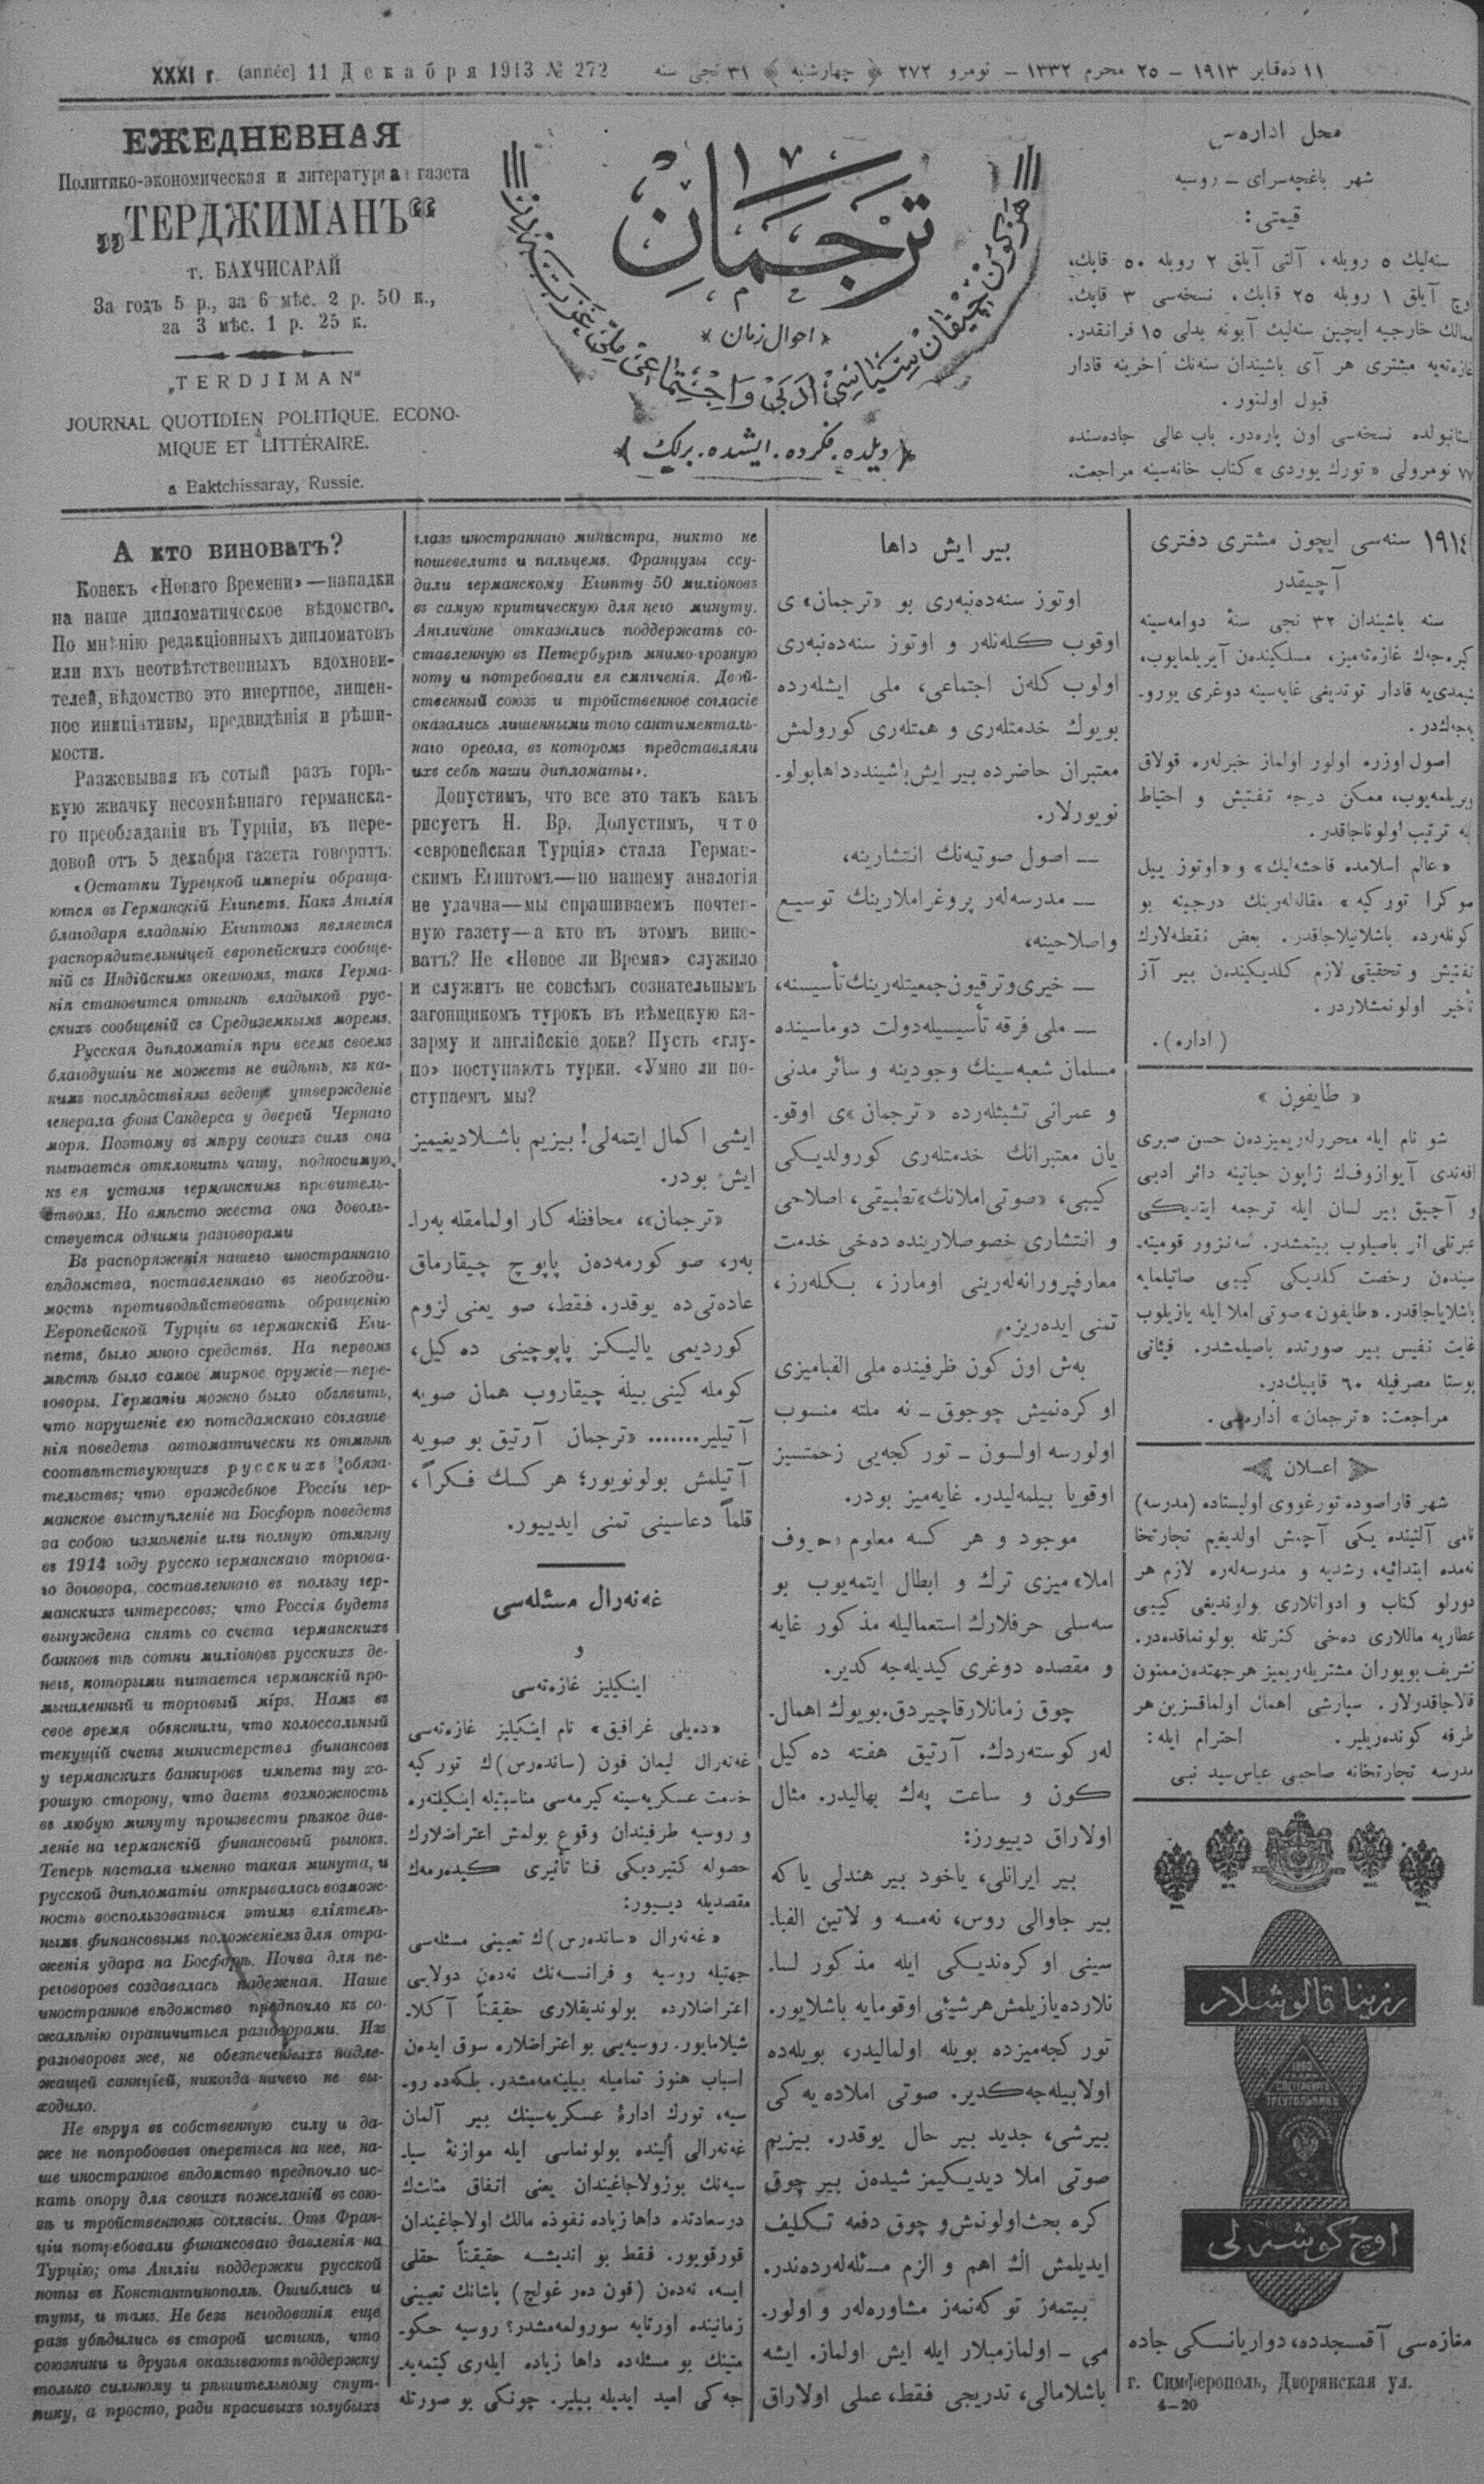 XXXI г. (année) 11 Декабря 1913 № 272
١١ ده‌قابر ١٩١٣ – ٢٥ محرم ١٣٣٢ – نومرو ٢٧٢ ﴿ چهارشنبه ﴾ ٣١ نجی سنه
ЕЖЕДНЕВНАЯ
Политико-экономическая и литературная газета
„ТЕРДЖИМАНЪ“
г. БАХЧИСАРАЙ
За годъ 5 р., за 6 мѣс. 2 р. 50 к.,
за 3 мѣс. 1 р. 25 к.
„TERDJIMAN“
JOURNAL QUOTIDIEN POLITIQUE. ECONO-
MIQUE ET LITTÉRAIRE.
a Baktchissaray, Russie.
ترجمان
احوال زمان
هر كون چیقان سیاسی ادبی و اجتماعی ملی غزته
دیلده . فكرده . ایشده . برلك
محل اداره‌سی
شهر باغچه‌سرای – روسیه
قیمتی :
سنه‌لیك ٥ روبله، آلتی آیلق ٢ روبله ٥٠ قاپك،
اوچ آیلق ١ روبله ٢٥ قاپك، نسخه‌سی ٣ قاپك.
ممالك خارجیه ایچین سنه‌لیك آبونه بدلی ١٥ فرانقدر.
غازه‌ته‌یه مشتری هر آی باشیندان سنه‌نك آخرینه قادار
قبول اولنور .
استانبولده نسخه‌سی اون پاره‌در. باب عالی جاده‌سنده
٧٧ نومرولی «تورك یوردی» كتاب خانه‌سینه مراجعت.
А кто виноватъ?
Конекъ «Новаго Времени»—нападки
на наше дипломатическое вѣдомство.
По мнѣнію редакціонныхъ дипломатовъ
или ихъ неотвѣтственныхъ вдохнови-
телей, вѣдомство это инертное, лишен-
ное иниціативы, предвидѣнія и рѣши-
мости.
Разжевывая въ сотый разъ горь-
кую жвачку несомнѣннаго германска-
го преобладанія въ Турціи, въ пере-
довой отъ 5 декабря газета говоритъ:
«Остатки Турецкой имперіи обраща-
ются въ Германскій Египетъ. Какъ Англія
благодаря владѣнію Египтомъ является
распорядительницей европейскихъ сообще-
ній съ Индійскимъ океаномъ, такъ Герма-
нія становится отнынѣ владыкой рус-
скихъ сообщеній съ Средиземнымъ моремъ.
Русская дипломатія при всемъ своемъ
благодушіи не можетъ не видѣть, къ ка-
кимъ послѣдствіямъ ведетъ утвержденіе
генерала фонъ Сандерса у дверей Чернаго
моря. Поэтому въ мѣру своихъ силъ она
пытается отклонить чашу, подносимую
къ ея устамъ германскимъ правитель-
ствомъ. Но вмѣсто жеста она доволь-
ствуется одними разговорами
Въ распоряженіи нашего иностраннаго
вѣдомства, поставленнаго въ необходи-
мость противодѣйствовать обращенію
Европейской Турціи въ германскій Еги-
петъ, было много средствъ. На первомъ
мѣстѣ было самое мирное оружіе—пере-
говоры. Германіи можно было объявить,
что нарушеніе ею потсдамскаго соглаше
нія поведетъ автоматически къ отмѣнѣ
соотвѣтствующихъ русскихъ обяза-
тельствъ; что враждебное Россіи гер-
манское выступленіе на Босфорѣ поведетъ
за собою измѣненіе или полную отмѣну
въ 1914 году русско германскаго торгова-
го договора, составленнаго въ пользу гер-
манскихъ интересовъ; что Россія будетъ
вынуждена снять со счета германскихъ
банковъ тѣ сотни миліоновъ русскихъ де-
негъ, которыми питается германскій про-
мышленный и торговый міръ. Намъ въ
свое время объяснили, что колоссальный
текущій счетъ министерства финансовъ
у германскихъ банкировъ имѣетъ ту хо-
рошую сторону, что даетъ возможность
въ любую минуту произвести рѣзкое дав-
леніе на германскій финансовый рынокъ.
Теперь настала именно такая минута, и
русской дипломатіи открывалась возмож-
ность воспользоваться этимъ вліятель-
нымъ финансовымъ положеніемъ для отра-
женія удара на Босфорѣ. Почва для пе-
реговоровъ создавалась надежная. Наше
иностранное вѣдомство предпочло къ со-
жалѣнію ограничиться разговорами. Изъ
разговоровъ же, не обезпеченныхъ надле-
жащей санкціей, никогда ничего не вы-
ходило.
Не вѣруя въ собственную силу и да-
же не попробовавъ опереться на нее, на-
ше иностранное вѣдомство предпочло ис-
кать опору для своихъ пожеланій въ сою-
зѣ и тройственномъ согласіи. Отъ Фран-
ціи потребовали финансоваго давленія на
Турцію; отъ Англіи поддержки русской
ноты въ Константинополѣ. Ошиблись и
тутъ, и тамъ. Не безъ негодованія еще
разъ убѣдились въ старой истинѣ, что
союзники и друзья оказываютъ поддержку
только сильному и рѣшительному спут-
нику, а просто, ради красивыхъ голубыхъ
глазъ иностраннаго министра, никто не
пошевелитъ и пальцемъ. Французы ссу-
дили германскому Египту 50 миліоновъ
въ самую критическую для него минуту.
Англичане отказались поддержать со-
ставленную въ Петербургѣ мнимо-грозную
ноту и потребовали ея смягченія. Двой-
ственный союзъ и тройственное согласіе
оказались лишенными того сантименталь-
наго ореола, въ которомъ представляли
ихъ себѣ наши дипломаты».
Допустимъ, что все это такъ какъ
рисуетъ Н. Вр. Допустимъ, что
«европейская Турція» стала Герман-
скимъ Египтомъ—по нашему аналогія
не удачна—мы спрашиваемъ почтен-
ную газету—а кто въ этомъ вино-
ватъ? Не «Новое ли Время» служило
и служитъ не совсѣмъ сознательнымъ
загонщикомъ турокъ въ нѣмецкую ка-
зарму и англійскіе доки? Пусть «глу-
по» поступаютъ турки. «Умно ли по-
ступаемъ мы?
ایشی اكمال ایتمه‌لی! بیزیم باشلادیغیمیز
ایش بودر.
«ترجمان»، محافظه كار اولمامقله به‌را-
به‌ر، صو كورمه‌ده‌ن پاپوچ چیقارماق
عاده‌تی ده یوقدر. فقط، صو یعنی لزوم
كوردیمی یالیكز پاپوچینی ده كیل،
كومله كینی بیله چیقاروب همان صویه
آتیلیر....... «ترجمان آرتیق بو صویه
آتیلمش بولونویور؛ هر كسك فكراً،
قلماً دعاسینی تمنی ایدییور.
غه‌نه‌رال مسئله‌سی
و
اینكیلیز غازه‌ته‌سی
«ده‌یلی غرافیق» نام اینكیلیز غازه‌ته‌سی
غه‌نه‌رال لیمان فون (سانده‌رس)ك توركیه
خدمت عسكریه‌سینه كیرمه‌سی مناسبتیله اینكیلتره
و روسیه طرفیندان وقوع بولمش اعتراضلارك
حصوله كتیردیكی فنا تأثیری كیده‌رمه‌ك
مقصدیله دییور:
«غه‌نه‌رال «سانده‌رس)ك تعیینی مسئله‌سی
جهتیله روسیه و فرانسه‌نك نه‌ده‌ن دولایی
اعتراضلارده بولوندیقلاری حقیقتاً آكلا-
شیلامایور. روسیه‌یی بو اعتراضلاره سوق ایده‌ن
اسباب هنوز تمامیله بیلینه‌مه‌مشدر. بلكه‌ده رو-
سیه، تورك ادارهٔ عسكریه‌سینك بیر آلمان
غه‌نه‌رالی ألینده بولونماسی ایله موازنهٔ سیا-
سیه‌نك بوزولاجاغیندان یعنی اتفاق مثلثك
درسعادتده داها زیاده نفوذه مالك اولاجاغیندان
قورقویور. فقط بو اندیشه حقیقتاً حقلی
ایسه، نه‌ده‌ن (فون ده‌ر غولچ) پاشانك تعیینی
زمانینده اورتایه سورولمه‌مشدر؟ روسیه حكو-
متینك بو مسئله‌ده داها زیاده ایله‌ری كیتمه‌یه-
جه كی امید ایدیله بیلیر. چونكی بو صورتله
بیر ایش داها
اوتوز سنه‌ده‌نبه‌ری بو «ترجمان»ی
اوقوب كله‌نله‌ر و اوتوز سنه‌ده‌نبه‌ری
اولوب كله‌ن اجتماعی، ملی ایشله‌رده
بویوك خدمتله‌ری و همتله‌ری كورولمش
معتبران حاضرده بیر ایش باشینده داها بولو-
نویورلار.
— اصول صوتیه‌نك انتشارینه،
— مدرسه‌له‌ر پروغراملارینك توسیع
و اصلاحینه،
— خیری و ترقیون جمعیتله‌رینك تأسیسنه،
— ملی فرقه تأسیسیله دولت دوماسینده
مسلمان شعبه‌سینك وجودینه و سائر مدنی
و عمرانی تشبثله‌رده «ترجمان»ی اوقو-
یان معتبرانك خدمتله‌ری كورولدیكی
كیبی، «صوتی املانك» تطبیقی، اصلاحی
و انتشاری خصوصلارینده ده‌خی خدمت
معارفپرورانه‌له‌رینی اومارز، بكله‌رز،
تمنی ایده‌ریز.
به‌ش اون كون ظرفینده ملی الفبامیزی
اوكره‌نمیش چوجوق – نه ملته منسوب
اولورسه اولسون – توركجه‌یی زحمتسیز
اوقویا بیلمه‌لیدر. غایه‌میز بودر.
موجود و هر كسه معلوم «حروف
املا» میزی ترك و ابطال ایتمه‌یوب بو
سه‌سلی حرفلارك استعمالیله مذكور غایه
و مقصده دوغری كیدیله‌جه كدیر.
چوق زمانلار قاچیردق. بویوك اهمال-
له‌ر كوسته‌ردك. آرتیق هفته ده كیل
كون و ساعت په‌ك بهالیدر. مثال
اولاراق دییورز:
بیر ایرانلی، یاخود بیر هندلی یا كه
بیر جاوالی روس، نه‌مسه و لاتین الفبا-
سینی اوكره‌ندیكی ایله مذكور لسا-
نلارده یازیلمش هر شیئی اوقومایه باشلایور.
توركجه‌میزده بویله اولمالیدر، بویله‌ده
اولابیله‌جه‌كدیر. صوتی املاده یه كی
بیرشی، جدید بیر حال یوقدر. بیزیم
صوتی املا دیدیكیمز شیده‌ن بیر چوق
كره بحث اولونمش و چوق دفعه تكلیف
ایدیلمش اك اهم و الزم مسئله‌له‌رده‌ندر.
بیتمه‌ز توكه‌نمه‌ز مشاوره‌له‌ر و اولور-
می – اولمازمیلار ایله ایش اولماز. ایشه
باشلامالی، تدریجی فقط، عملی اولاراق
١٩١٤ سنه‌سی ایچون مشتری دفتری
آچیقدر
سنه باشیندان ٣٢ نجی سنهٔ دوامه‌سینه
كیره‌جه‌ك غازه‌ته‌میز، مسلكیندن آیریلمایوب،
شیمدی‌یه قادار توتدیغی غایه‌سینه دوغری یورو-
یه‌جه‌ك‌در.
اصول اوزره اولور اولماز خبرله‌ره قولاق
ویریلمه‌یوب، ممكن درجه تفتیش و احتیاط
ایله ترتیب اولوناجاقدر.
«عالم اسلامده فاحشه‌لیك» و «اوتوز ییل
صوكرا توركیه» مقاله‌له‌رینك درجینه بو
كونله‌رده باشلانیلاجاقدر. بعض نقطه‌لارك
تفتیش و تحقیقی لازم كلدیكیندن بیر آز
تأخیر اولونمشلاردر.
(اداره).
« طایفون »
شو نام ایله محررله‌ریمیزدن حسن صبری
افندی آیوازوف‌ك ژاپون حیاتینه دائر ادبی
و آچیق بیر لسان ایله ترجمه ایتدیكی
عبرتلی اثر باصیلوب بیتمشدر. سه‌نزور قومیته-
سیندن رخصت كلدیكی كیبی صاتیلمایه
باشلایاجاقدر. «طایفون» صوتی املا ایله یازیلوب
غایت نفیس بیر صورتده باصیلمشدر. فیئاتی
پوستا مصرفیله ٦٠ قاپیك‌در.
مراجعت: «ترجمان» اداره‌سی.
اعلان
شهر قاراصوده تورغووی اولیستاده (مدرسه)
نامی آلتینده یكی آچمش اولدیغیم تجارتخا
نه‌مده ابتدائیه، رشدیه و مدرسه‌له‌ره لازم هر
دورلو كتاب و ادوانلاری بولوندیغی كیبی
عطاریه ماللاری ده‌خی كثرتله بولونماقده‌در.
تشریف بویوران مشتریله‌ریمیز هر جهتدن ممنون
قالاجاقدرلار. سپارشی اهمال اولماقسزین هر
طرفه كونده‌ریلیر. احترام ایله:
مدرسه تجارتخانه صاحبی عباس سید نبی
رزینا قالوشلار
1860
ТРЕУГОЛЬНИКЪ
اوچ كوشه‌لی
مغازه‌سی آقمسجدده، دواریانسكی جاده
г. Симферополь, Дворянская ул.
4—20